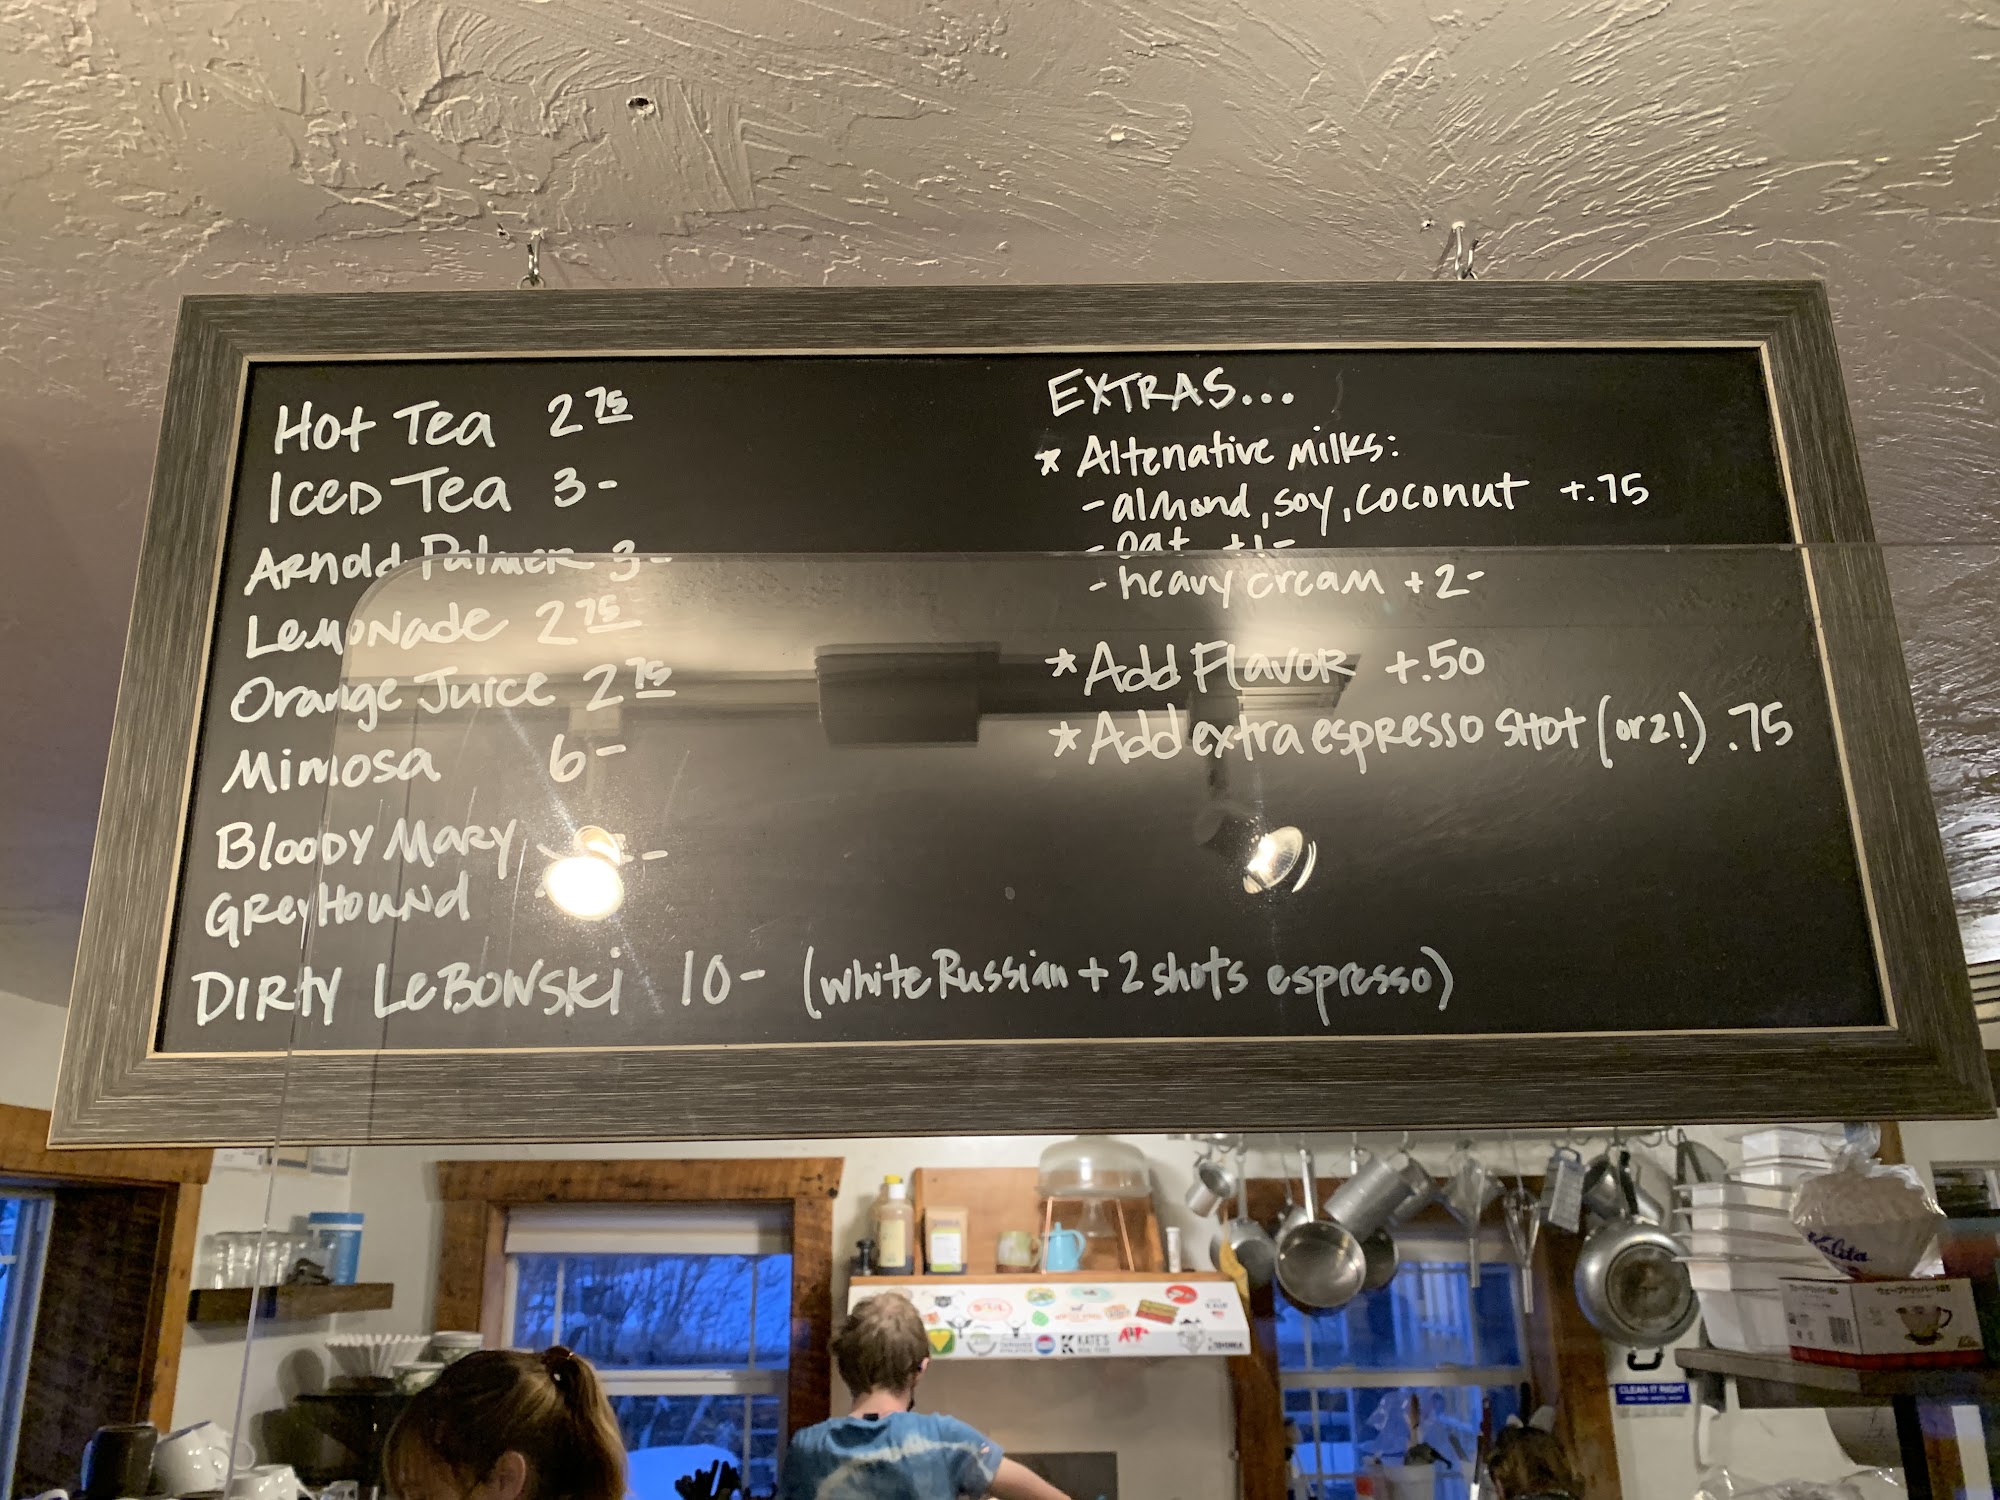 Hot Tea 2 75
Iced Tea 3-
Arnold Palmer 3-
Lemonade 2 75
Orange Juice 2 75
Mimosa 6-
Bloody Mary -
GreyHound
DIRTY LeBowski 10- (white Russian + 2 shots espresso)
EXTRAS...
* Altenative milks:
- almond, soy, coconut +.75
- oat +1-
- heavy cream +2-
* Add Flavor +.50
* Add extra espresso SHot (or 2!) .75
KATE'S
Kalita
CLEAN IT RIGHT